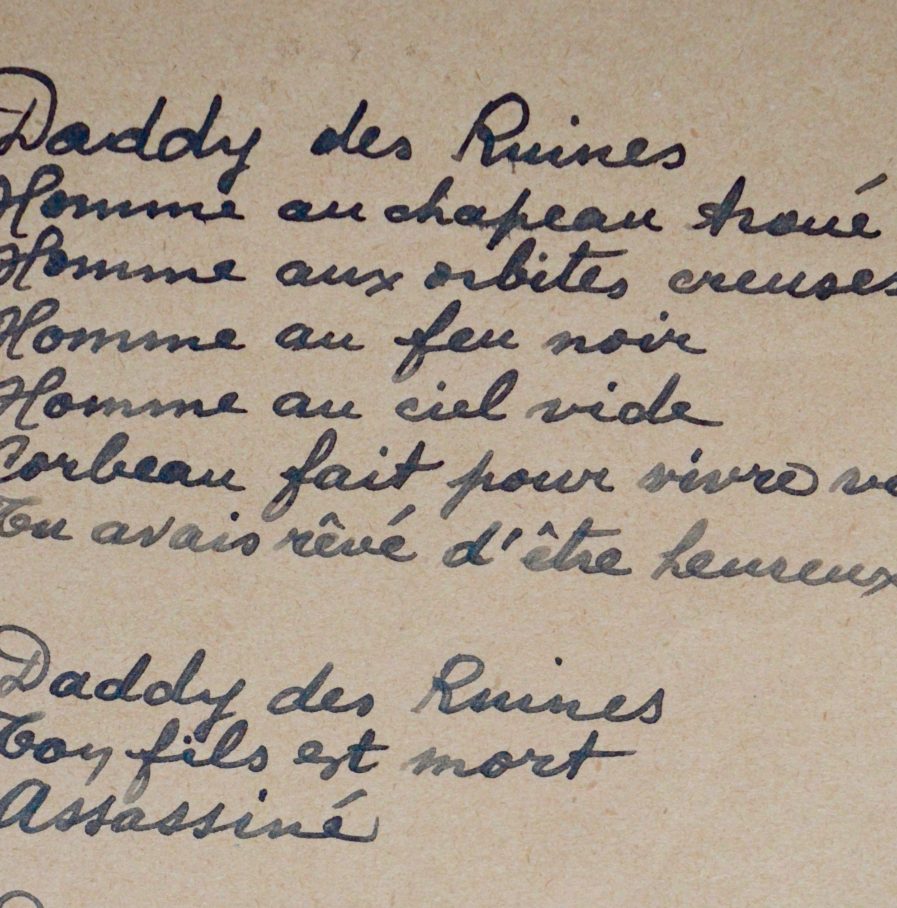 Daddy des Ruines
Homme au chapeau troué
Homme aux orbites creuses
Homme au feu noir
Homme au ciel vide
Corbeau fait pour vivre
Tu avais rêvé d'être heureux

Daddy des Ruines
Ton fils est mort
Assassiné